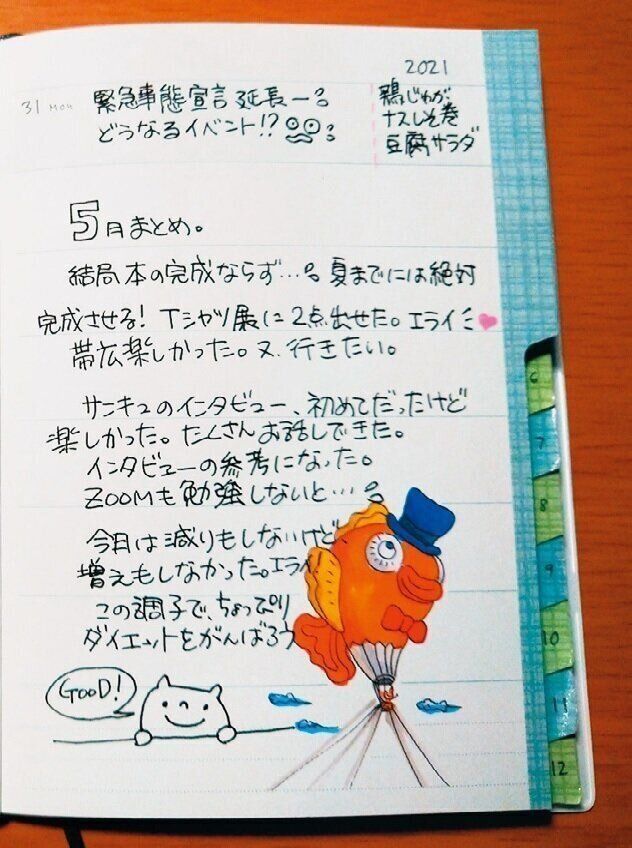 2021
31 MON
緊急事態宣言 延長ー
どうなるイベント!?
鶏じゃが
ナスしそ巻
豆腐サラダ
5月まとめ。
結局本の完成ならず…。夏までには絶対
完成させる! Tシャツ展に2点出せた。エライ
帯広楽しかった。又、行きたい。
サンキュのインタビュー、初めてだったけど
楽しかった。たくさんお話しできた。
インタビューの参考になった。
ZOOMも勉強しないと…
今月は減りもしないけど
増えもしなかった。エライ!
この調子で、ちょっぴり
ダイエットをがんばろう
GOOD!
6
7
8
9
10
11
12